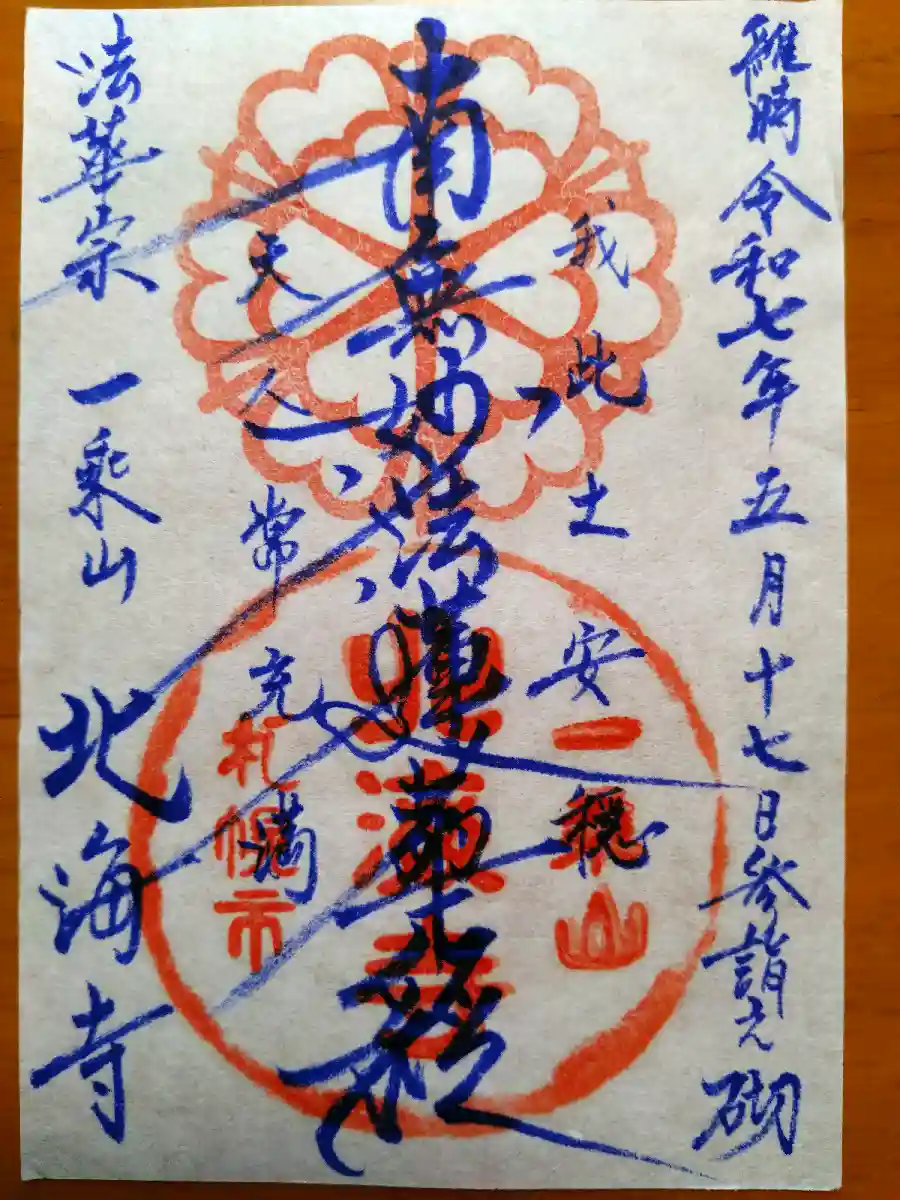 維時令和七年五月十七日参詣之砌
我此土安穏
南無妙法蓮華経
天人常充満
法華宗 一乗山 北海寺
一乗山
北海寺
札幌市